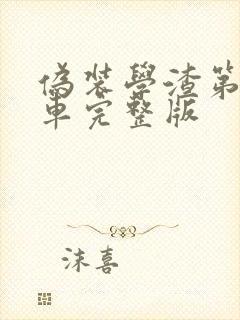 偽裝學渣第
車完整版
沫喜